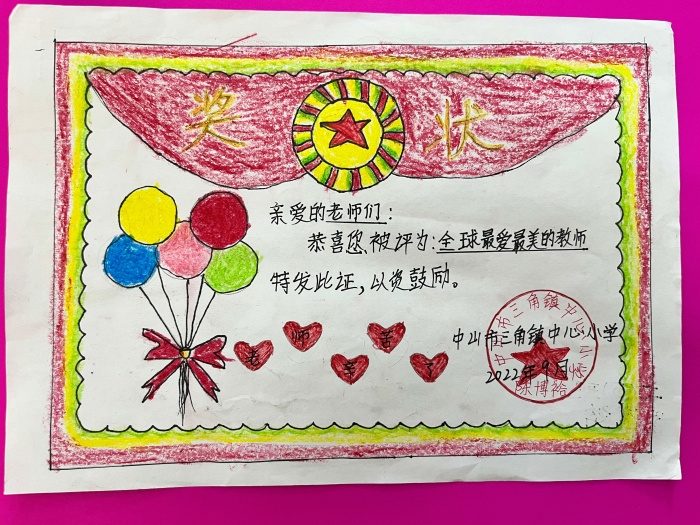 奖状
亲爱的老师们:
恭喜您被评为:全球最爱最美的教师
特发此证,以资鼓励。
老师辛苦了
中山市三角镇中心小学
2022年9月
中山市三角镇中心小学
陈博裕